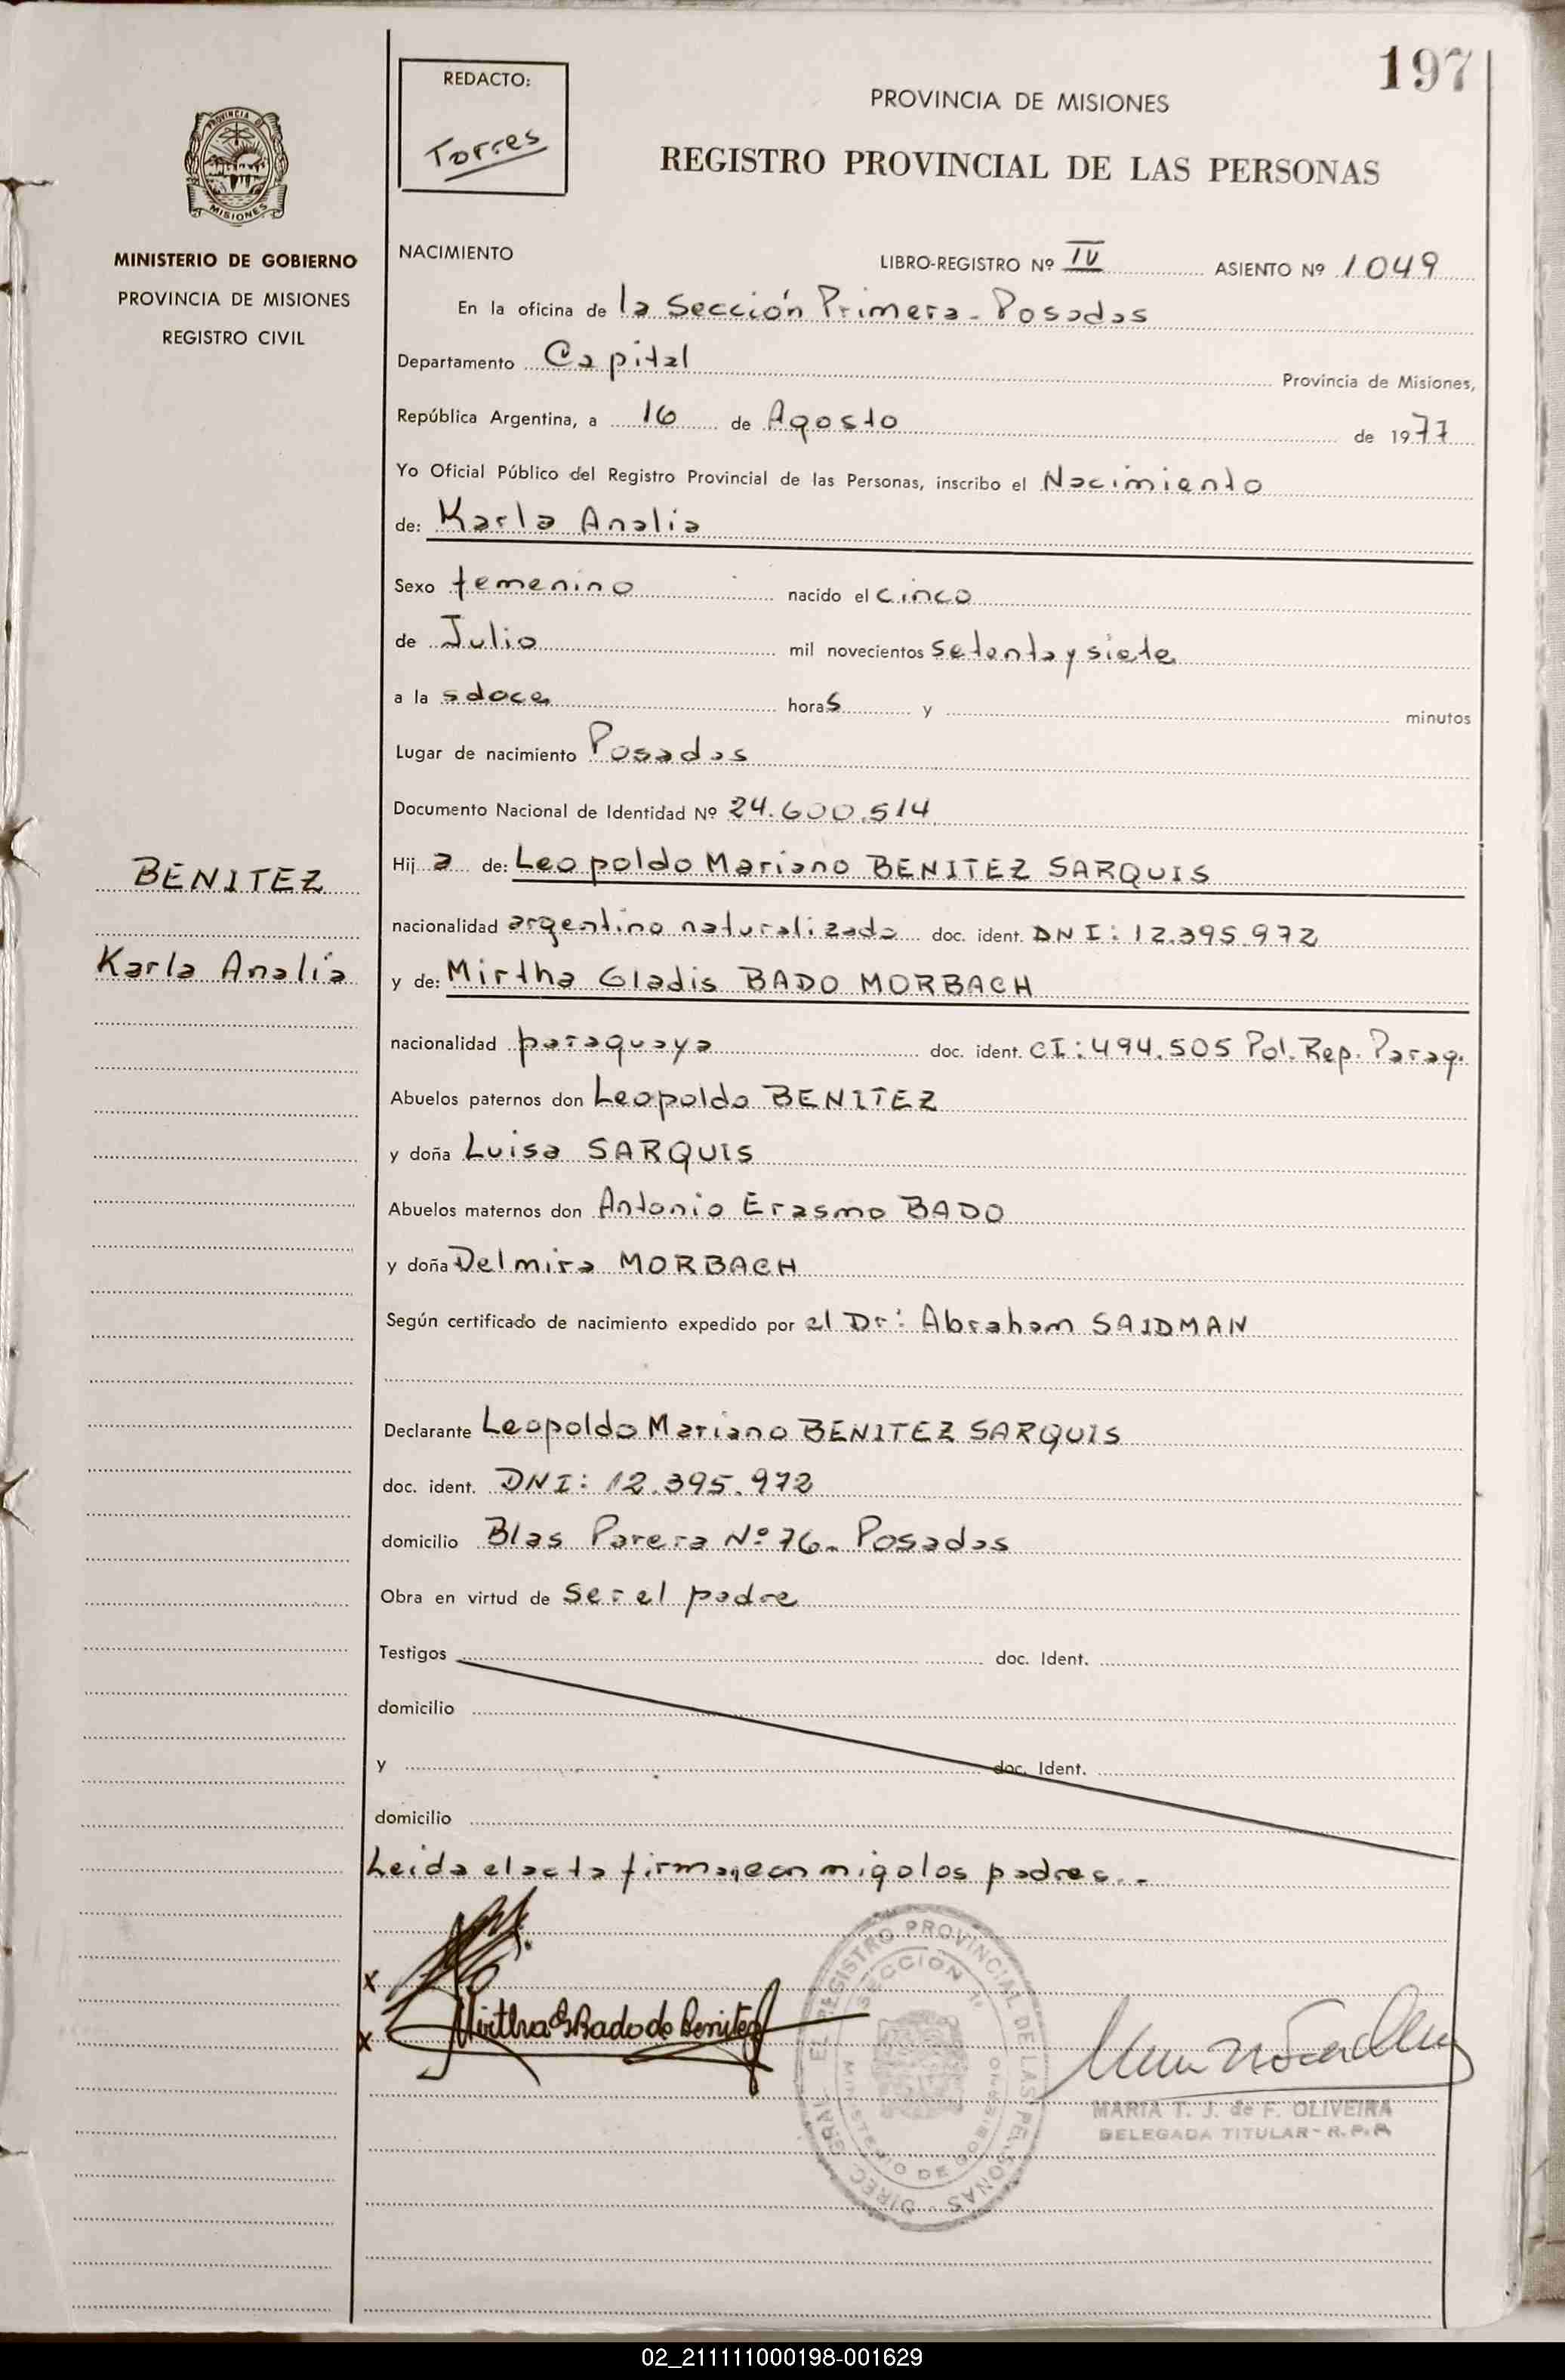 197
REDACTO:
Torres
PROVINCIA DE MISIONES
REGISTRO PROVINCIAL DE LAS PERSONAS
PROVINCIA D
MISIONES
MINISTERIO DE GOBIERNO
PROVINCIA DE MISIONES
REGISTRO CIVIL
NACIMIENTO LIBRO-REGISTRO Nº IV ASIENTO Nº 1049
En la oficina de la Sección Primera - Posadas
Departamento Capital Provincia de Misiones,
República Argentina, a 16 de Agosto de 1977
Yo Oficial Público del Registro Provincial de las Personas, inscribo el Nacimiento
de: Karla Analia
Sexo femenino nacido el cinco
de Julio mil novecientos setenta y siete
a la s doce horas y minutos
Lugar de nacimiento Posadas
Documento Nacional de Identidad Nº 24.600.514
BENITEZ
Karla Analía
Hij a de: Leopoldo Mariano BENITEZ SARQUIS
nacionalidad argentino naturalizado doc. ident. DNI: 12.395.972
y de: Mirtha Gladis BADO MORBACH
nacionalidad paraguaya doc. ident. CI: 494.505 Pol. Rep. Parag.
Abuelos paternos don Leopoldo BENITEZ
y doña Luisa SARQUIS
Abuelos maternos don Antonio Erasmo BADO
y doña Delmira MORBACH
Según certificado de nacimiento expedido por el Dr: Abraham SAIDMAN
Declarante Leopoldo Mariano BENITEZ SARQUIS
doc. ident. DNI: 12.395.972
domicilio Blas Parera Nº 76 - Posadas
Obra en virtud de ser el padre
Testigos doc. Ident.
domicilio
y doc. Ident.
domicilio
Leida el acta firman con migo los padres.-
x
x Mirtha G Bado de Benitez
DIREC. GRAL. EL REGISTRO PROVINCIAL DE LAS PERSONAS
SECCION 1ª
MINISTERIO DE GOBIERNO
MARIA T. J. de F. OLIVEIRA
DELEGADA TITULAR - R.P.P.
02_211111000198-001629